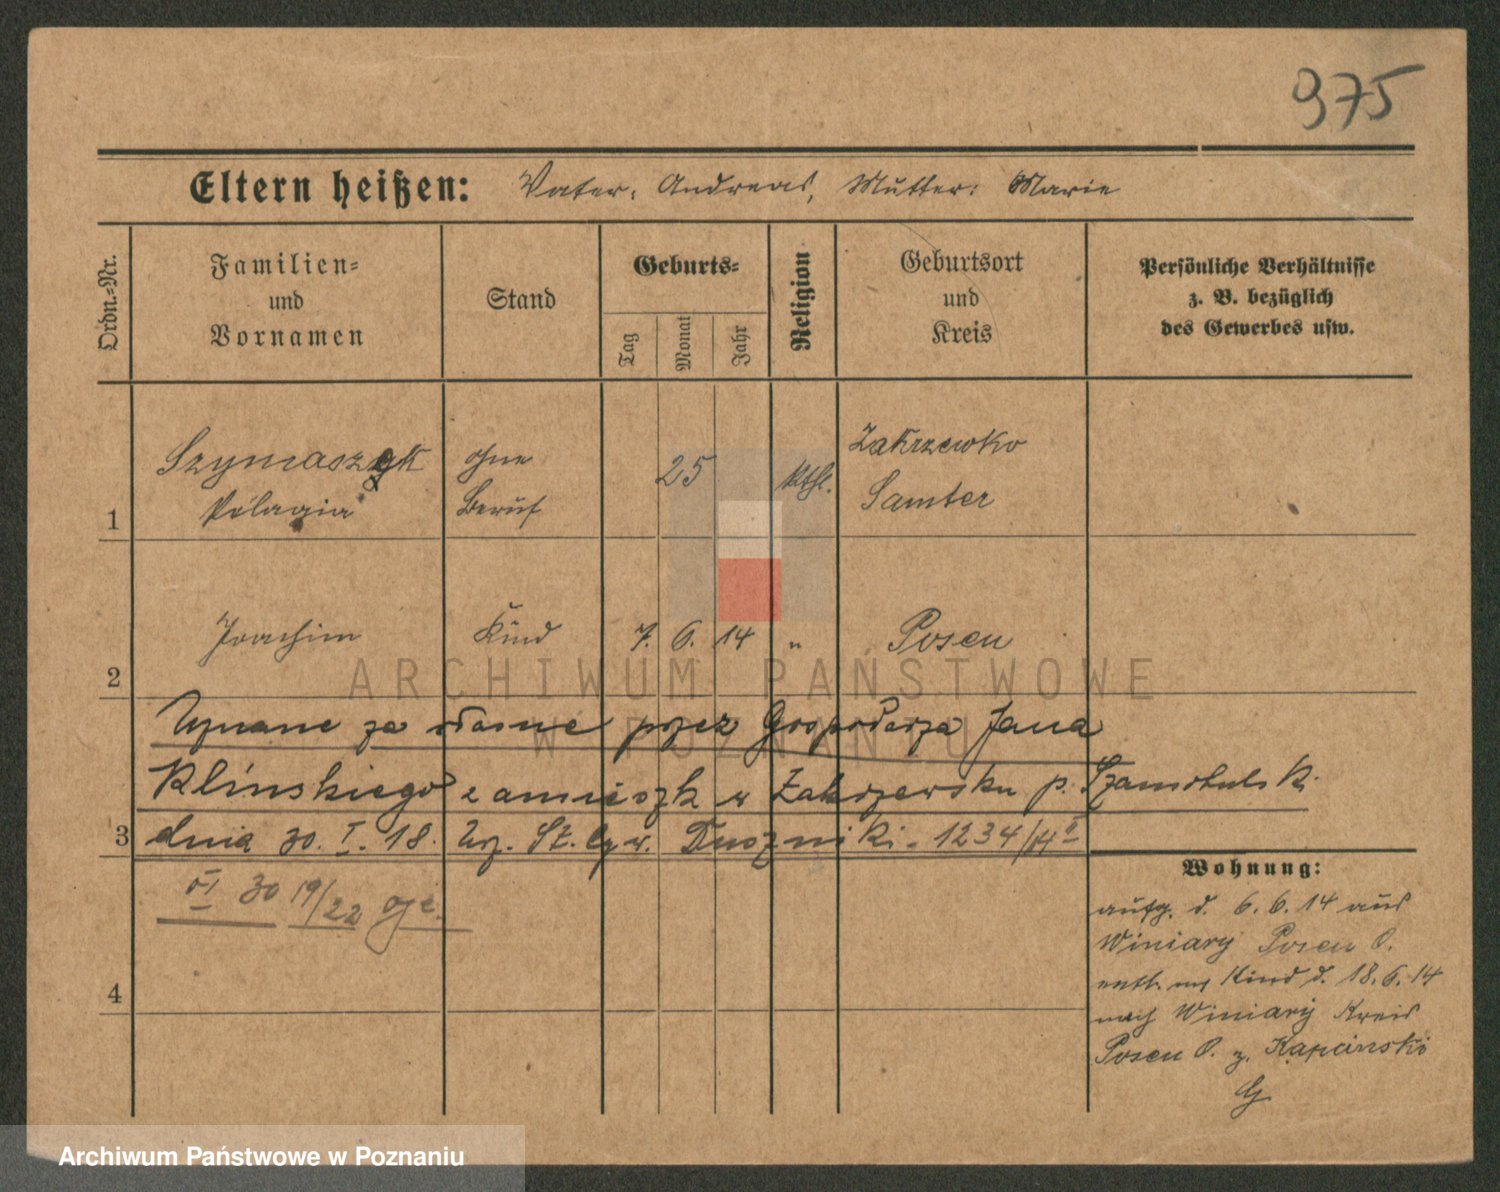 975
Eltern heißen: Vater: Andreas, Mutter: Marie
Ordn.-Nr.
Familien-
und
Vornamen
Stand
Geburts-
Tag
Monat
Jahr
Religion
Geburtsort
und
Kreis
Persönliche Verhältnisse
z. B. bezüglich
des Gewerbes usw.
1
Szymaszyk
Pelagia
ohne
Beruf
25
kthl.
Zakrzewko
Samter
2
Joachim
Kind
7. 6. 14 "
Posen
Uznane za własne przez Gospodarza Jana
Klinskiego zamieszk w Zakrzewku p. Szamotulski
3
dnia 30. I. 18. Urz. St. Cyw. Duszniki - 1234/14
VI 30 19/22
4
Wohnung:
aufg. d. 6. 6. 14 aus
Winiary Posen O.
entl. mit Kind d. 18. 6. 14
nach Winiary Kreis
Posen O. z. Kapcinski
G
ARCHIWUM PAŃSTWOWE
W POZNANIU
Archiwum Państwowe w Poznaniu